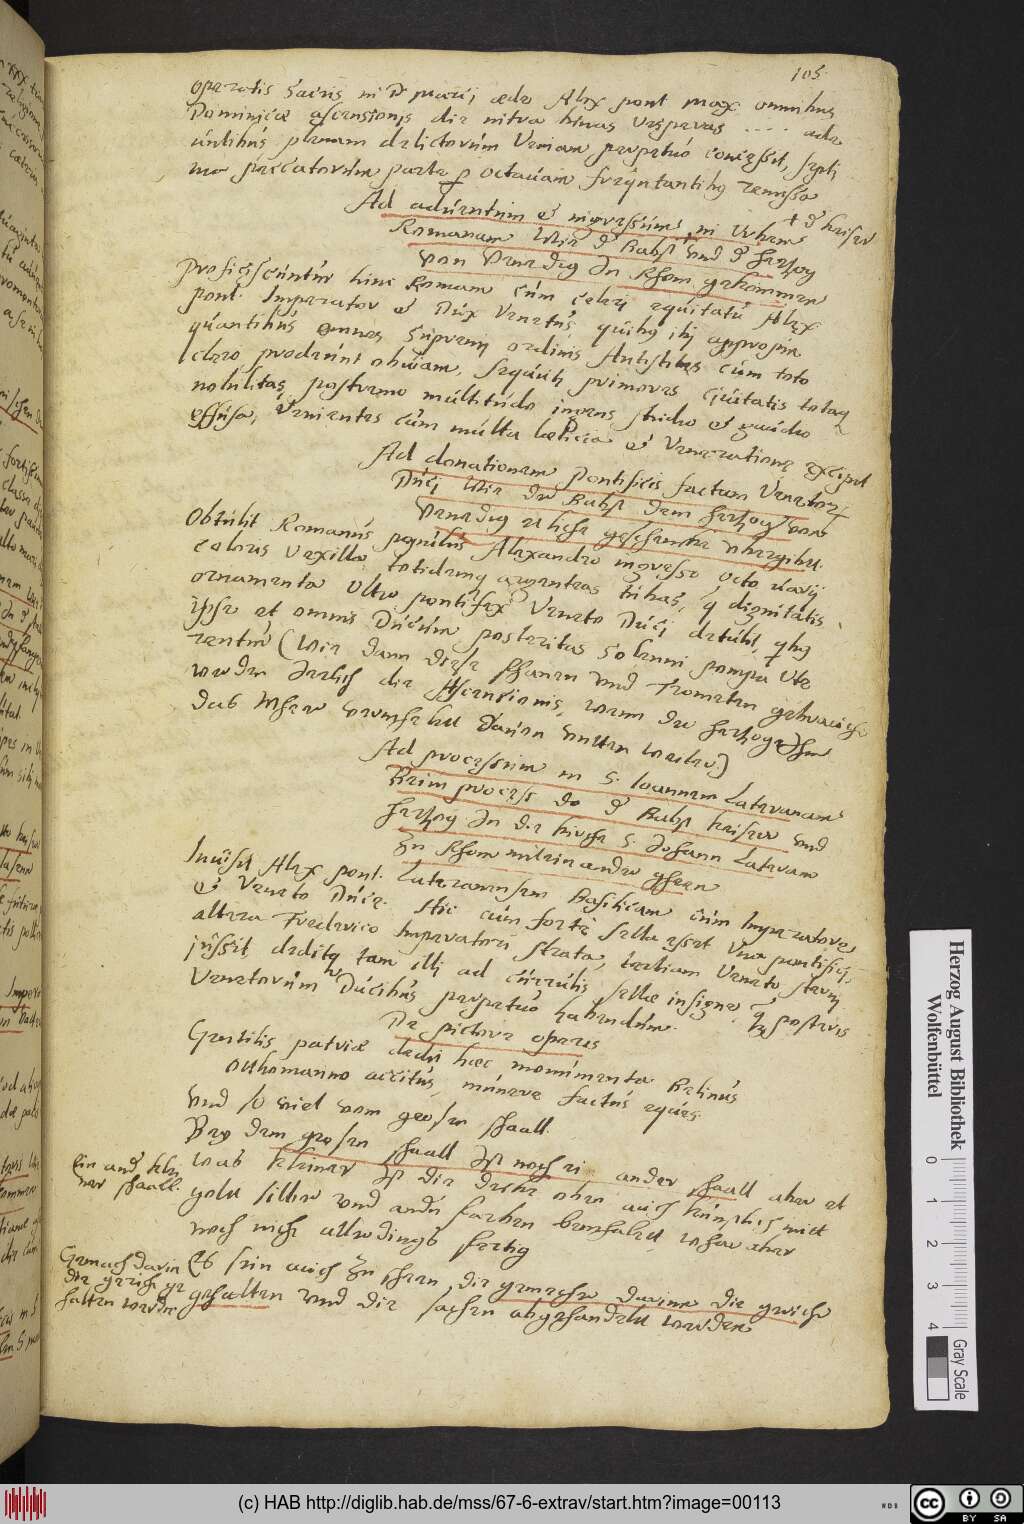 105.
operatis sacris in D. Marci, æde Alex pont max omnibus
Dominicæ ascensionis die intra binas vesperas .... ade
untibus plenam delictorum veniam perpetuo concessit, septi
ma peccatorum parte p octavam frequentantibus remissa
Ad adventum et ingressum in Urbem + d keiser
Romanam Wie d Babst und d Hertzog
von Venedig In Rhom gekommen
Proficiscuntur hinc Romam cum celeri equitatu Alex
pont. Imperator et Dux Venetus, quibus iis appropin
quantibus omnes supremi ordinis Antistites cum toto
clero prodeunt obviam, sequuti primores civitatis totaq
nobilitas, postremo multitudo ingens studio et gaudio
effusa, venientes cum multa lætitia et veneratione excipit
Ad donationem pontificis factam Venetor
Duci Wie der Babst dem Hertzog von
Venedig etliche geschencke ubergibt.
Obtulit Romanus populus Alexandro ingresso octo varij
coloris vexilla, totidemq argenteas tubas, q dignitatis
ornamenta ultro pontifex Veneto Duci detulit, qbus
ipse et omnis Ducum posteritas solenni pompa ute
rentur (Wie dann diese fhanen und Trometen gebraucht
werden Jerlich die Ascensionis, wann der Hertzog
das Mheer vermehelt davon unten weiter)
Ad processum in S. Ioannem Lateranam
Beim process do d Babst keiser und
Hertzog In die kirche S. Johann Lateran
zu Rhom miteinander gehen
Invisit Alex pont. Lateranensem Basilicam cum Imperatore
et Veneto Duce. Hic cum forte sella esset una pontifici,
altera Frederico Imperatori strata, tertiam Veneto sterni
jussit, deditq tam illi ad currulis sellæ insigne q posteris
Venetorum Ducibus perpetuo habendum.
De pictore operis
Gentilis patriæ dedi hæc monumenta Belinus
Otthomanno accitus, munere factus eques.
und so viel vom grosen shaall.
Bey dem grosen shaall Ist noch ei ander shaall aber et
was kleiner Ist die decke oben auch kunstlich mitt
golt silber und andn farben bemhalet, wher aber
noch nicht allerdings fertig
Ein and klei
ner shaall.
Es sein auch zu shen die gemecher darinne die gericht
gehalten und die sachen abgehandelt werden
Gemach darin
die gericht ge
halten werden
Herzog August Bibliothek
Wolfenbüttel
0 1 2 3 4
Gray Scale
(c) HAB http://diglib.hab.de/mss/67-6-extrav/start.htm?image=00113
WDB
cc BY SA